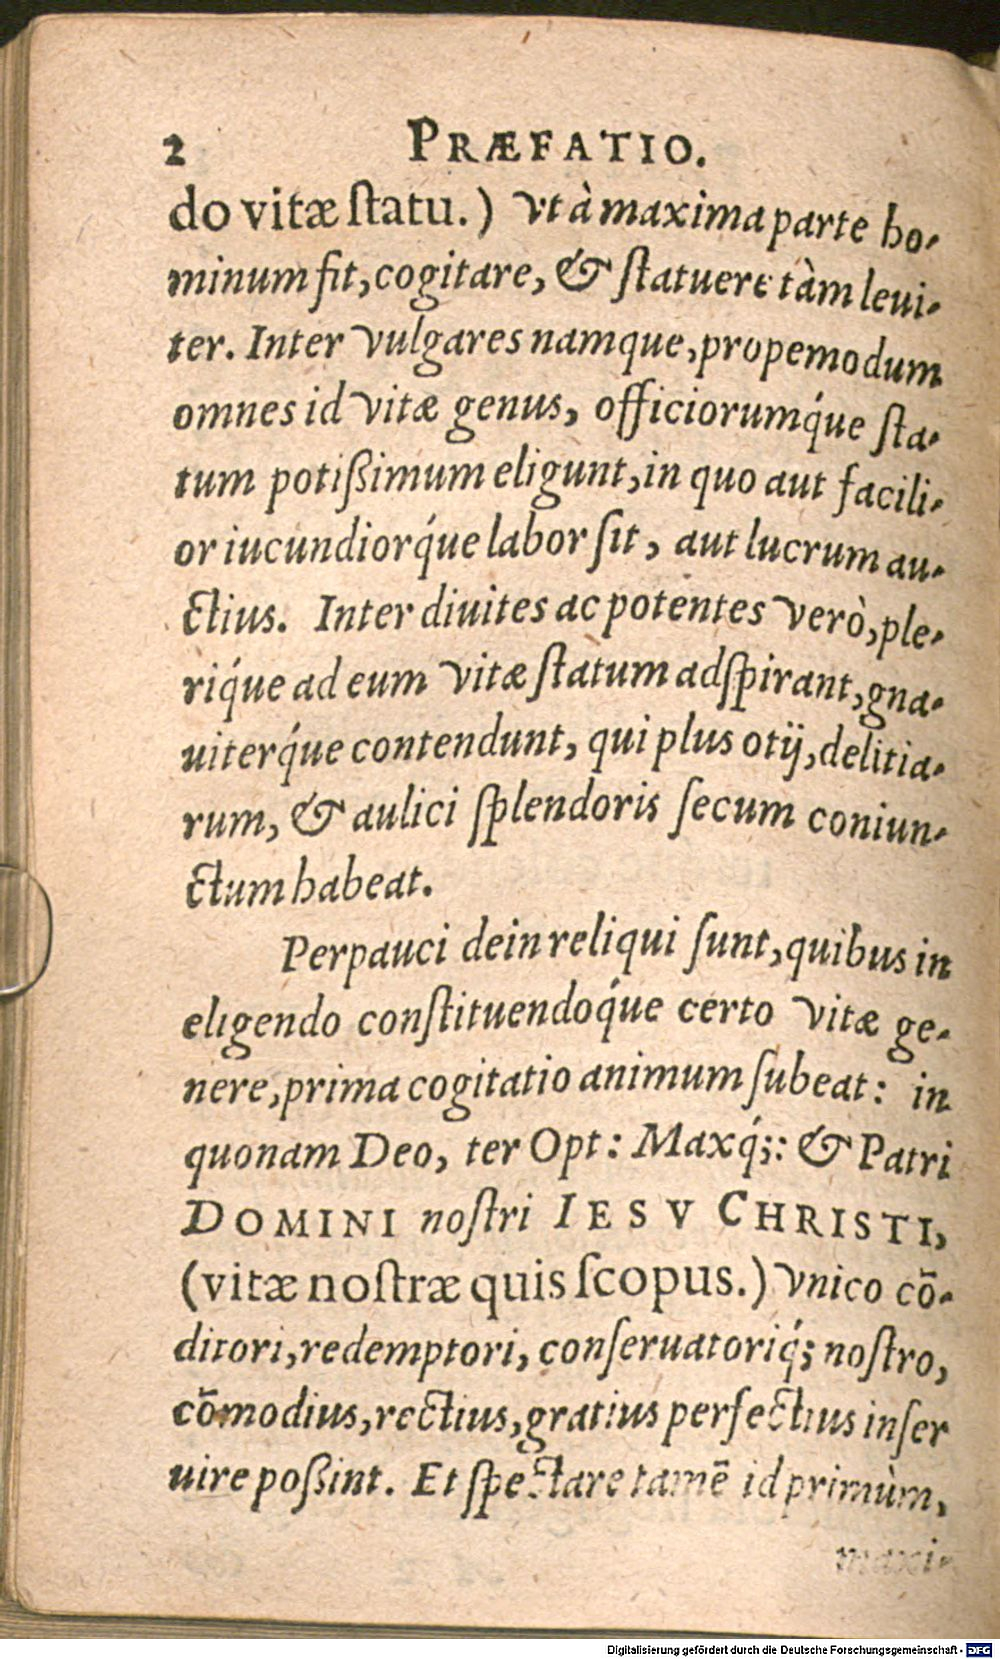 2 PRÆFATIO.
do vitæ ſtatu.) Vt à maxima parte ho-
minum fit, cogitare, & ſtatuere tàm leui-
ter. Inter vulgares namque, propemodum
omnes id vitæ genus, officiorumq́ue ſta-
tum potißimum eligunt, in quo aut facili-
or iucundiorq́ue labor ſit, aut lucrum au-
ctius. Inter diuites ac potentes verò, ple-
riq́ue ad eum vitæ ſtatum adſpirant, gna-
uiterq́ue contendunt, qui plus otij, delitia-
rum, & aulici ſplendoris ſecum coniun-
ctum habeat.
Perpauci dein reliqui ſunt, quibus in
eligendo conſtituendoq́ue certo vitæ ge-
nere, prima cogitatio animum ſubeat: in
quonam Deo, ter Opt: Maxq́;: & Patri
DOMINI noſtri IESV CHRISTI,
(vitæ noſtræ quis ſcopus.) vnico cō-
ditori, redemptori, conſeruatoriq́; noſtro,
cōmodius, rectius, gratius perfectius inſer
uire poßint. Et ſpectare tamē id primùm,
maxi-
Digitalisierung gefördert durch die Deutsche Forschungsgemeinschaft - DFG